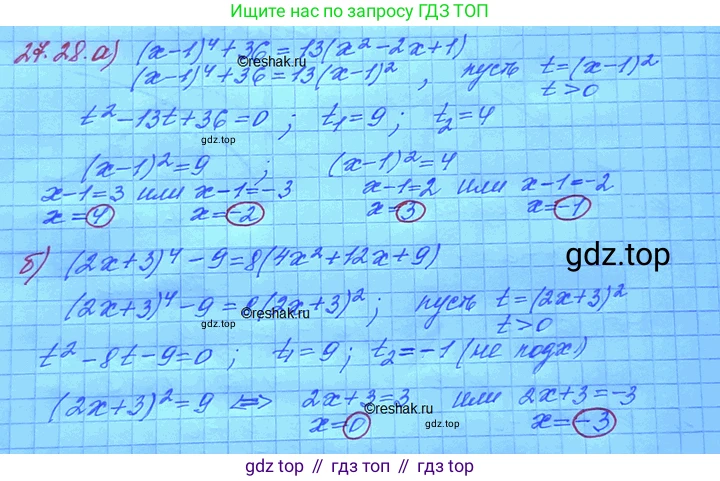 Ищите ответ по запросу ГДЗ ТОП
27.28.а) (x-1)⁴+36=13(x²-2x+1)
©reshak.ru
(x-1)⁴+36=13(x-1)², пусть t=(x-1)²
t>0
t²-13t+36=0; t₁=9; t₂=4
gdz.top
(x-1)²=9; (x-1)²=4
x-1=3 или x-1=-3 x-1=2 или x-1=-2
x=4 x=-2 x=3 x=-1
©reshak.ru
б) (2x+3)⁴-9=8(4x²+12x+9)
gdz.top
(2x+3)⁴-9=8(2x+3)²; пусть t=(2x+3)²
©reshak.ru
gdz.top
t>0
t²-8t-9=0; t₁=9; t₂=-1 (не подх)
(2x+3)²=9 <=> 2x+3=3 или 2x+3=-3
©reshak.ru
x=0 x=-3
gdz.top
gdz top // гдз топ // gdz.top